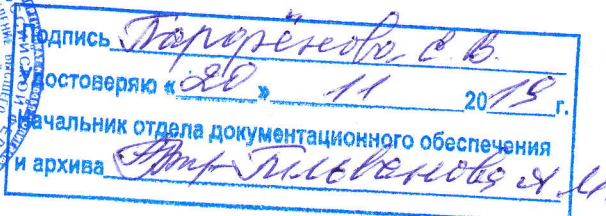 Подпись Парфёнова С. В.
Удостоверяю « 20 » 11 2019 г.
Начальник отдела документационного обеспечения
и архива Гильванова А М.